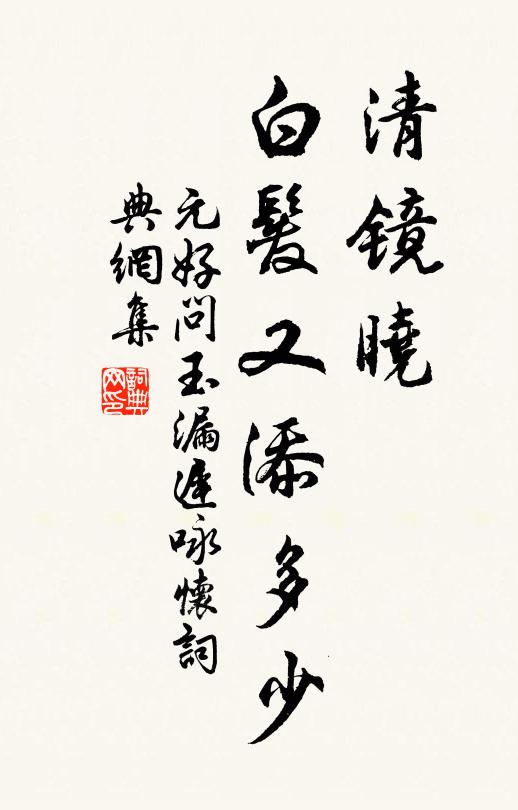 清鏡曉
白髮又添多少
元好問玉漏遲咏懷詞
典網集
詞典網印